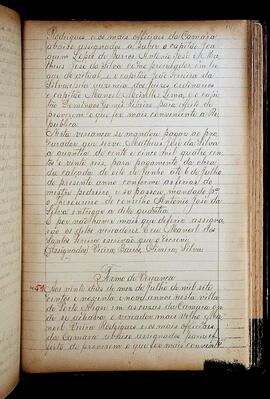 Rodrigues e os mais officiais da Camara
abaixo assignados a saber o capitão Joa
quim Lopes de Barros Antonio José e Ma
theus José da Silva como procurador em lu
gar do actual, e o capitão
em ausencia dos juizes ordinarios
e o capitão Manoel Lima, e o ca
pitão Domingos Gomes Ribeiro para effeito de
proverem o que for mais conveniente a Re
publica.
Nesta vereança se mandou pagar ao pro
curador que serve Matheus José da Silva
a quantia de cento e cinco mil quatro cen
tos e vinte reis, para pagamento da obra
da calçada do este de junho até 6 de julho
do presente anno conforme as ferias do
mestre pedreiro, e se passou mandado para
o thesoureiro do conselho Antonio José da
Silva entregar a dita quantia.
E por não haver mais que deferir assigna
rão os ditos vereadores. Eu Manoel dos
Santos escrivão que o escrevi
(Assignados) Vieira, Barros, Oliveira, Silva
Termo de Vereança
Aos vinte dias do mez de julho de mil sete
centos e noventa e nove annos nesta villa
de Porto Alegre em as casas da Camara on
de se achava o vereador mais velho Ma
noel Vieira Rodrigues e os mais officiais
da Camara abaixo assignados para ef
feito de proverem o que for mais conveniente